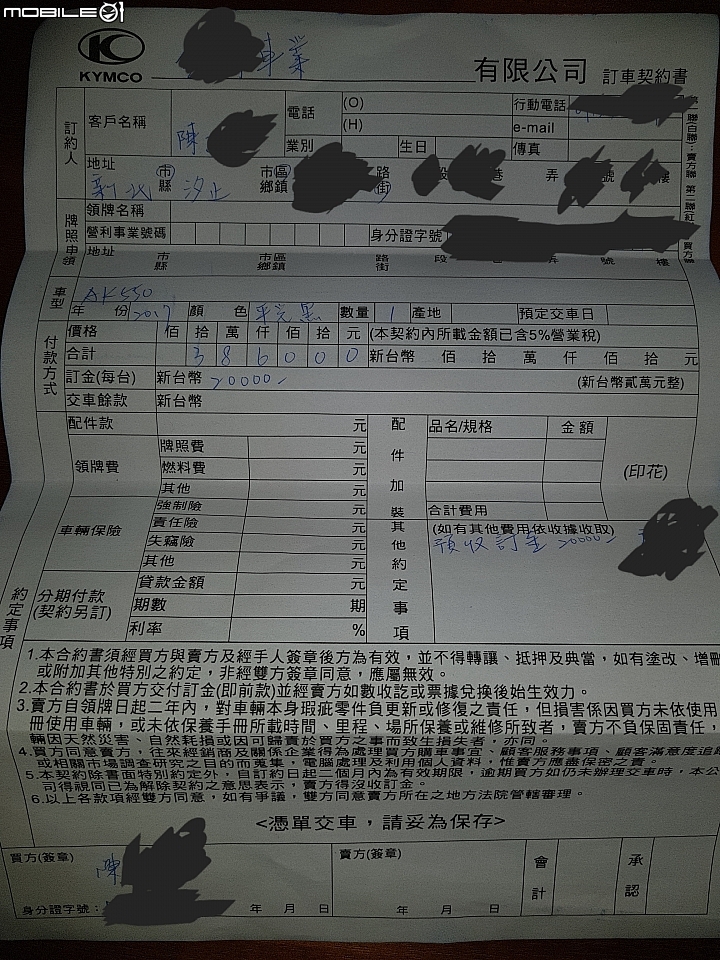 MOBILE01
KYMCO
車業
有限公司 訂車契約書
訂約人
客戶名稱 陳
電話 (O) 行動電話
(H) e-mail
業別 生日 傳真
地址 新北 市縣 汐止 市區鄉鎮 路街 段 巷 弄 號 樓
牌照申領
領牌名稱
營利事業號碼 身分證字號
地址 市縣 市區鄉鎮 路街 段 巷 弄 號 樓
車型 AK550
年份 2017 顏色 平光黑 數量 1 產地 預定交車日
付款方式
價格 佰 拾 萬 仟 佰 拾 元 (本契約內所載金額已含5%營業稅)
合計 3 8 6 0 0 0 新台幣 佰 拾 萬 仟 佰 拾 元
訂金(每台) 新台幣 20000 (新台幣貳萬元整)
交車餘款 新台幣
約定事項
配件款 元
領牌費 牌照費 元
燃料費 元
其他 元
車輛保險 強制險 元
責任險 元
失竊險 元
其他 元
分期付款 (契約另訂) 貸款金額 元
期數 期
利率 %
配件加裝 品名/規格 金額
(印花)
合計費用
其他約定事項 (如有其他費用依收據收取)
預收訂金 20000
1.本合約書須經買方與賣方及經手人簽章後方為有效，並不得轉讓、抵押及典當，如有塗改、增刪
或附加其他特別之約定，非經雙方簽章同意，應屬無效。
2.本合約書於買方交付訂金(即前款)並經賣方如數收訖或票據兌換後始生效力。
3.賣方自領牌日起二年內，對車輛本身瑕疵零件負更新或修復之責任，但損害係因買方未依使用
冊使用車輛，或未依保養手冊所載時間、里程、場所保養或維修所致者，賣方不負保固責任，
輛因天然災害、自然耗損或因可歸責於買方之事而致生損失者，亦同。
4.買方同意賣方，往來經銷商及關係企業得為處理買方購車事宜、顧客服務事項、顧客滿意度追蹤
或相關市場調查研究之目的而蒐集，電腦處理及利用個人資料，惟賣方應盡保密之責。
5.本契約除書面特別約定外，自訂約日起二個月內為有效期限，逾期買方如仍未辦理交車時，本公
司得視同已為解除契約之意思表示，賣方得沒收訂金。
6.以上各款項經雙方同意，如有爭議，雙方同意賣方所在之地方法院管轄審理。
<憑單交車，請妥為保存>
買方(簽章) 陳
身分證字號： 年 月 日
賣方(簽章)
年 月 日
會計
承認